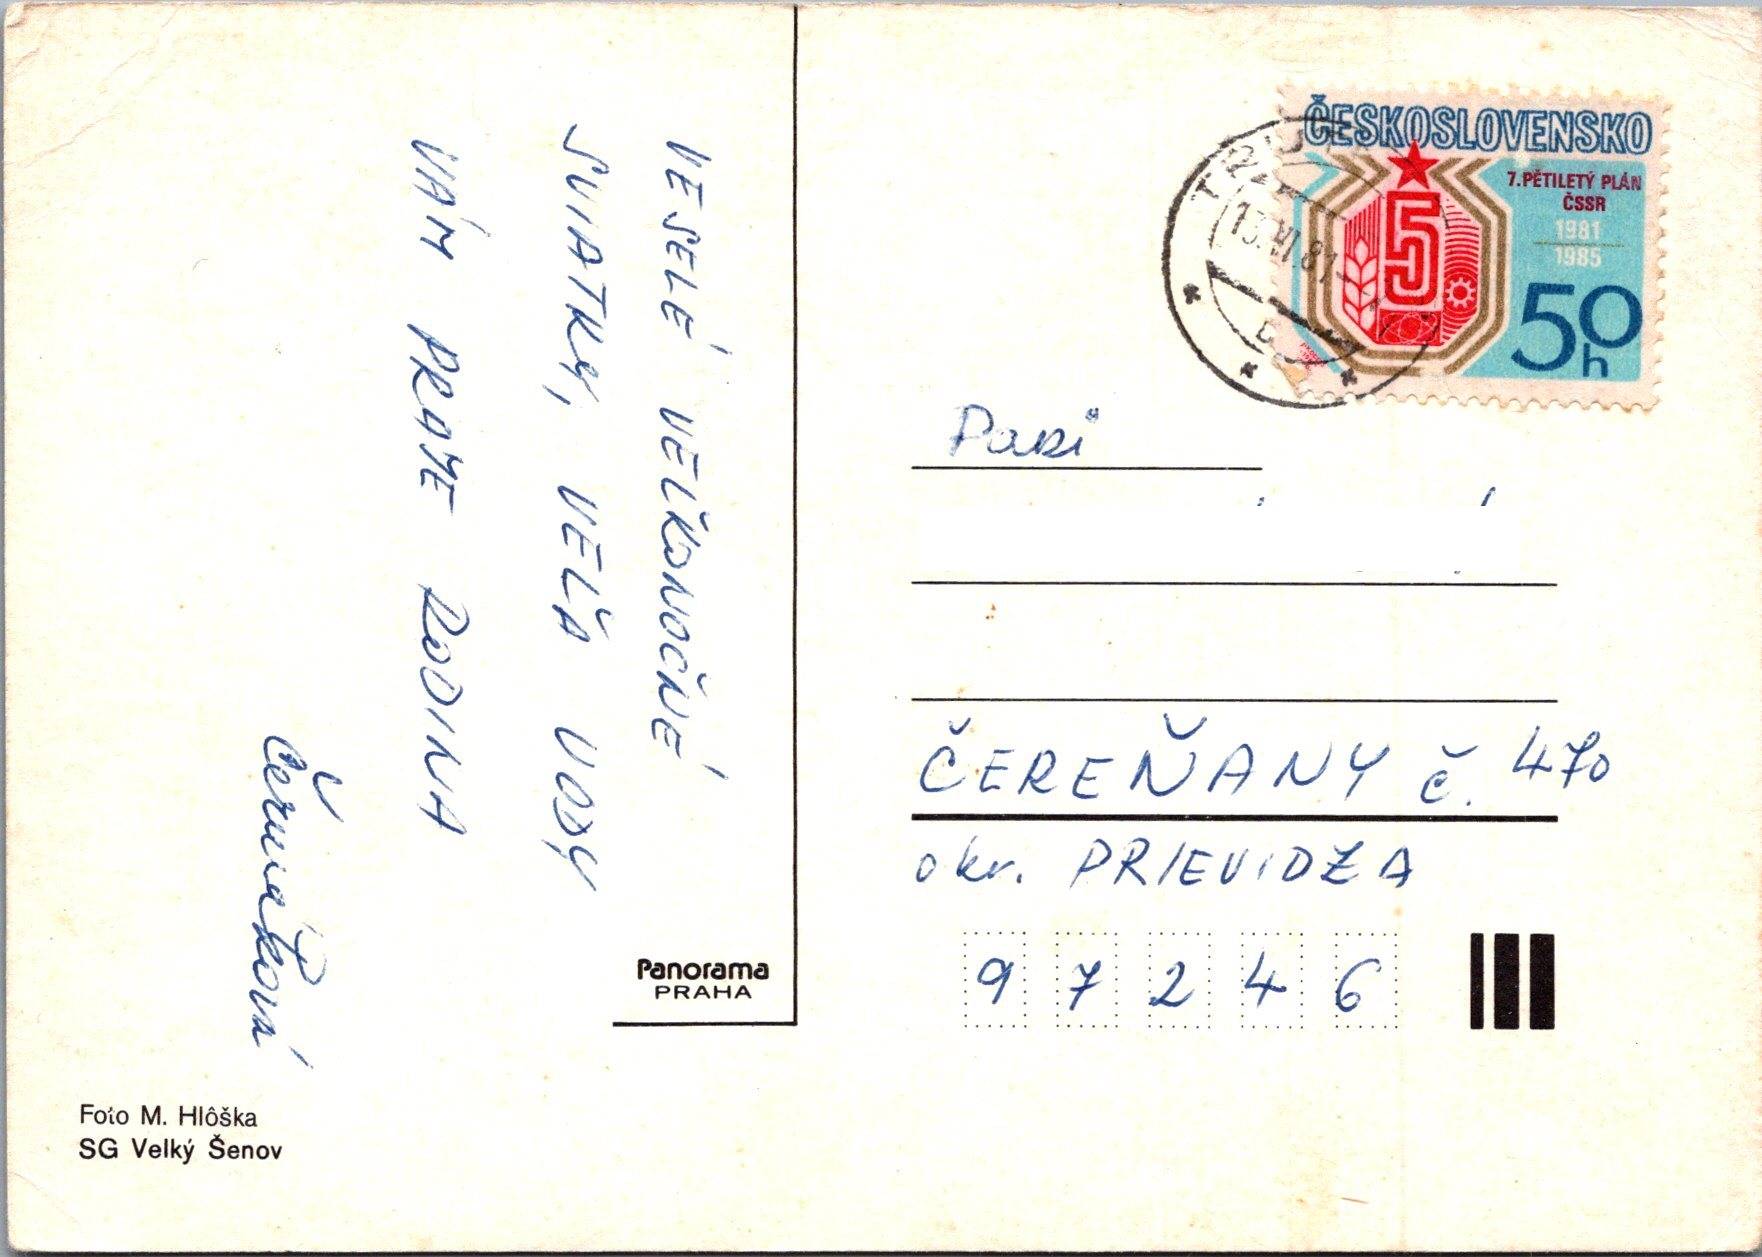 VESELÉ VEĽKONOČNÉ
SVIATKY, VEĽA VODY
VÁM PRAJE RODINA
Černáková
Panorama
PRAHA
Foto M. Hlôška
SG Velký Šenov
ČESKOSLOVENSKO
7. PĚTILETÝ PLÁN
ČSSR
1981
1985
5
50
h
ČEREŇANY č. 470
okr. PRIEVIDZA
97246